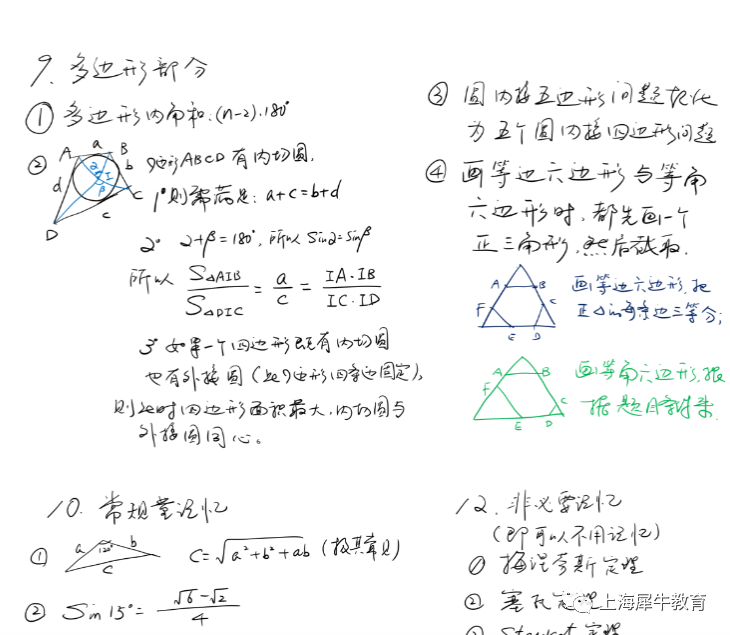 9. 多边形部分
① 多边形内角和:(n-2)·180°
② 四边形ABCD有内切圆,
A a B
b
d
α I
β
C
c
D
1° 则需满足: a+c=b+d
2° α+β=180°, 所以 sinα=sinβ
所以 S△AIB/S△DIC = a/c = IA·IB/IC·ID
3° 如果一个四边形既有内切圆
也有外接圆(此四边形四条边固定),
则此时四边形面积最大,内切圆与
外接圆同心。
③ 圆内接五边形问题转化
为五个圆内接四边形问题
④ 画等边六边形与等角
六边形时, 都先画一个
正三角形, 然后截取.
A B
F C
E D
画等边六边形, 把
正△的每条边三等分;
A B
F
C
E D
画等角六边形, 根
据题目
10. 常规量记忆
① a 120° b
c
C=√a²+b²+ab (极其常见)
② Sin 15°= √6-√2/4
12. 非必要记忆
(即可以不用记忆)
① 梅涅劳斯定理
② 塞瓦定理
③ Stewart 定理
上海犀牛教育